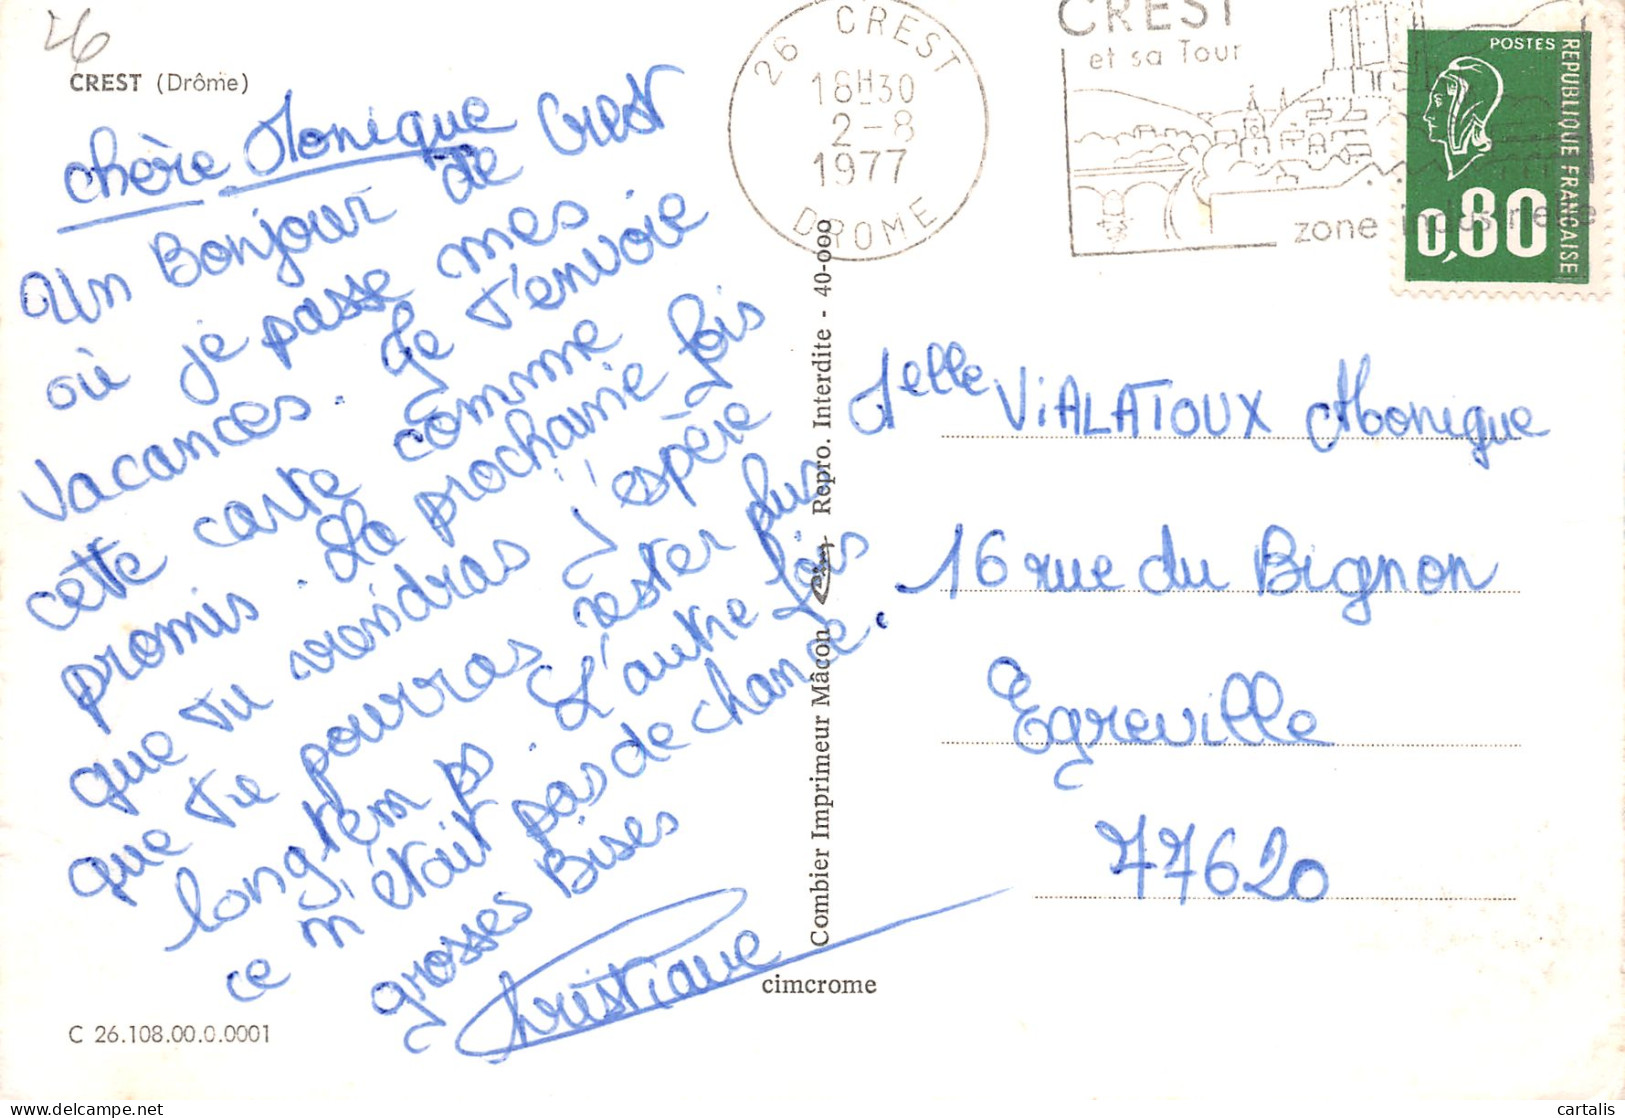 26
CREST (Drôme)
chère Monique
Un Bonjour de Crest
où je passe mes
vacances. Je t'envoie
cette carte comme
promis. La prochaine fois
que tu viendras j'espère
que tu pourras rester plus
longtemps. L'autre fois
ce n'était pas de chance.
grosses Bises
Christiane
C 26.108.00.0.0001
Combier Imprimeur Mâcon Cim Repro. Interdite - 40-000
cimcrome
26 CREST
18H30
2-8
1977
DROME
CREST
et sa Tour
zone industrielle
POSTES
REPUBLIQUE FRANÇAISE
0,80
Melle VIALATOUX Monique
16 rue du Bignon
Egreville
77620
cartalis